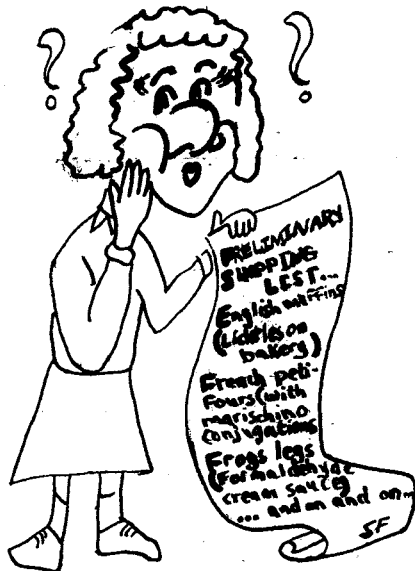 ?
?
PRELIMINARY
SHOPPING
LEST...
English muffins
bakery)
French peti-
Fours (with
marischino
conjugations
Frogs legs
(Formaldehyde
cream sauce)
... and on and on...
SF